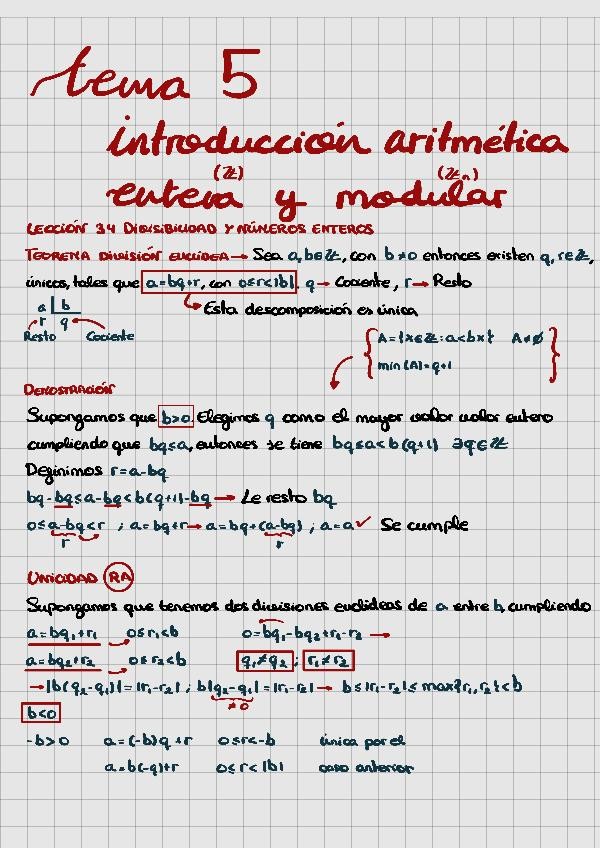 tema 5
introducción aritmética
(ℤ) (ℤn)
entera y modular
LECCIÓN 34 DIVISIBILIDAD Y NÚMEROS ENTEROS
TEOREMA DIVISIÓN EUCLÍDEA → Sea a, b ∈ ℤ, con b ≠ 0 entonces existen q, r ∈ ℤ,
únicos, tales que a = bq + r, con 0 ≤ r < |b|. q → Cociente, r → Resto
↳ Esta descomposición es única
a | b
r q
Resto Cociente
A = {x ∈ ℤ : a < bx} A ≠ ∅
min(A) = q+1
DEMOSTRACIÓN
Supongamos que b>0. Elegimos q como el mayor valor valor entero
cumpliendo que bq ≤ a, entonces se tiene bq ≤ a < b(q+1) ∃q ∈ ℤ
Definimos r = a - bq
bq - bq ≤ a - bq < b(q+1) - bq → Le resto bq
0 ≤ a - bq < r ; a = bq + r → a = bq + (a - bq) ; a = a ✓ Se cumple
r r
UNICIDAD RA
Supongamos que tenemos dos divisiones euclídeas de a entre b, cumpliendo
a = bq₁ + r₁ 0 ≤ r₁ < b 0 = bq₁ - bq₂ + r₁ - r₂ →
a = bq₂ + r₂ 0 ≤ r₂ < b q₁ ≠ q₂ ; r₁ ≠ r₂
→ |b(q₂ - q₁)| = |r₁ - r₂| ; b|q₂ - q₁| = |r₁ - r₂| → b ≤ |r₁ - r₂| ≤ max{r₁, r₂} < b
≠ 0
b<0
-b > 0 a = (-b)q + r 0 ≤ r < -b única por el
a = b(-q) + r 0 ≤ r < |b| caso anterior